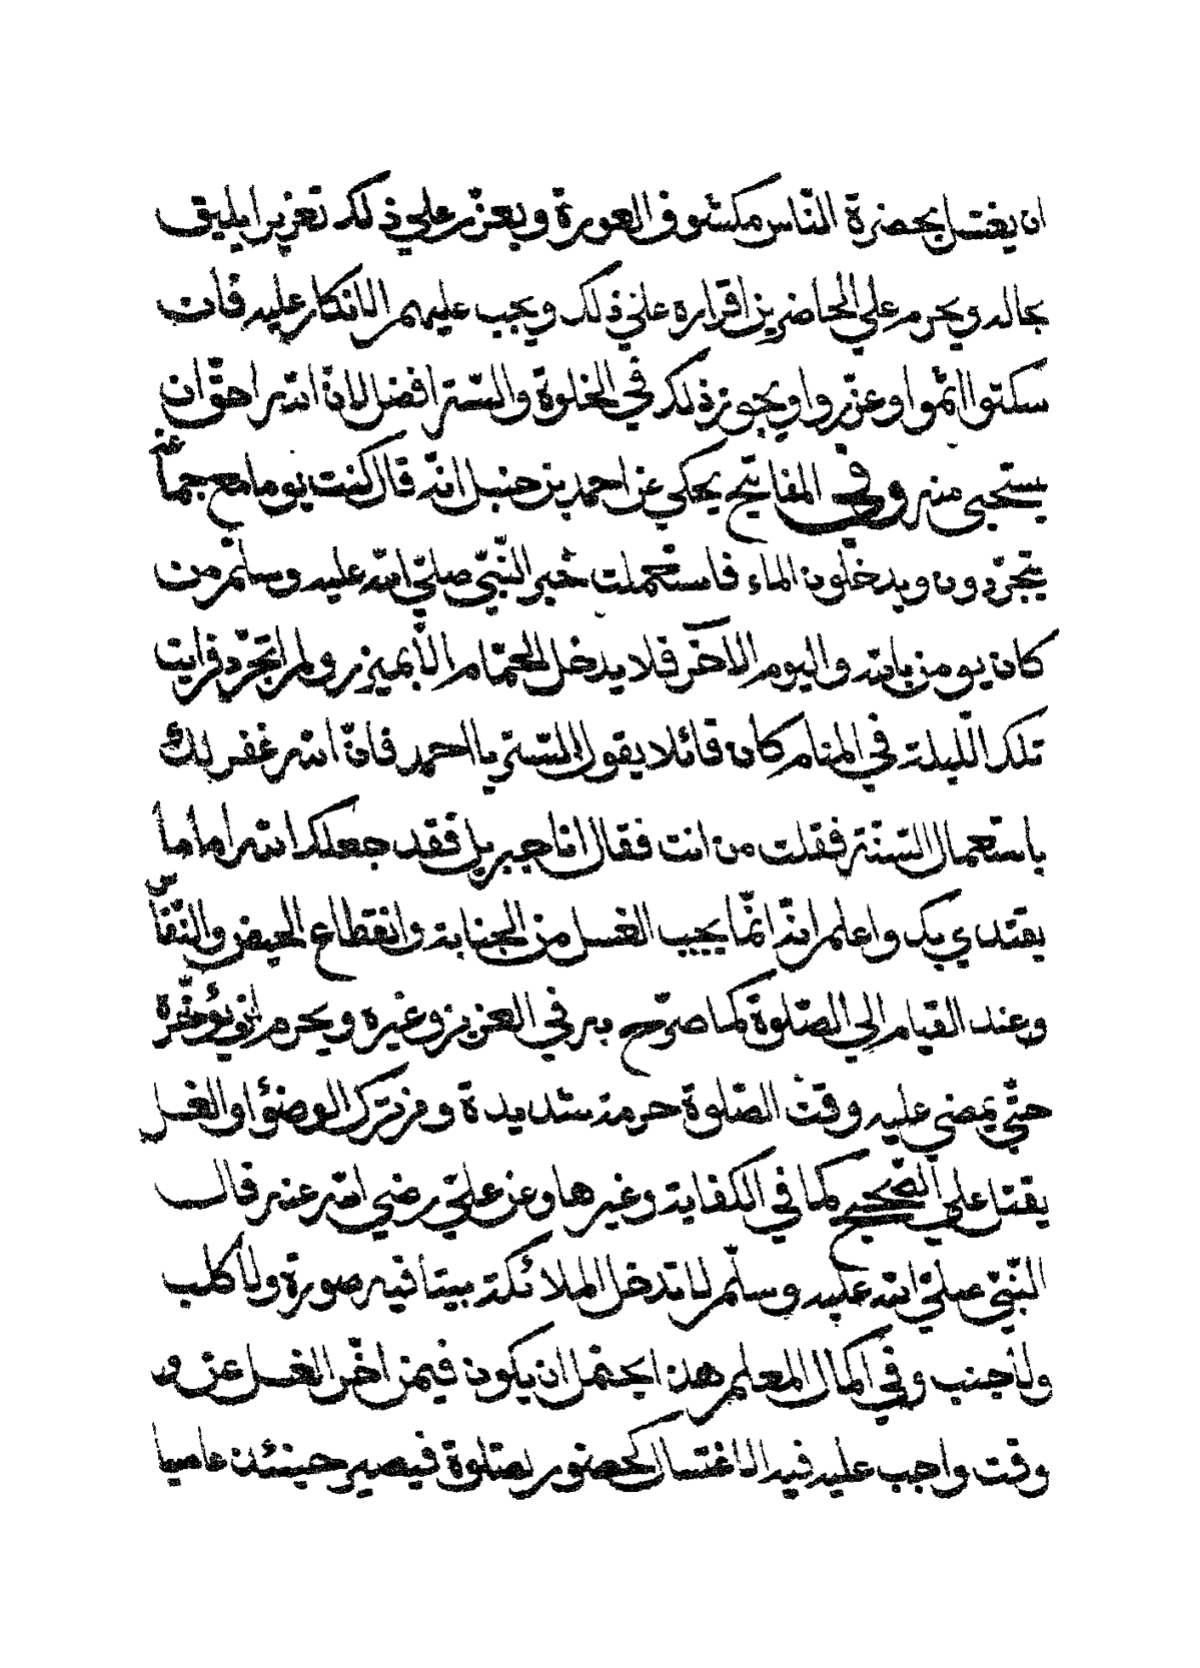 ان يغتسل بحضرة الناس مكشوف العورة ويعزّر علي ذلك تعزيرا يليق
بحاله ويحرم علي الحاضرين اقراره علي ذلك ويجب عليهم الانكار عليه فان
سكتوا اثموا وعزّروا ويجوز ذلك في الخلوة والستر افضل لانّ الله احقّ ان
يستحيى منه وفي المفاتيح يحكي عن احمد بن حنبل انّه قال كنت يوما مع جماعة
يتجرّدون ويدخلون الماء فاستعملت خبر النّبيّ صلّي الله عليه وسلّم من
كان يومن بالله واليوم الآخر فلا يدخل الحمّام الّا بميزر ولم اتجرّد فرايت
تلك اللّيلة في المنام كان قائلا يقول لي ابشر يا احمد فانّ الله غفر لك
باستعمال السّنّة فقلت من انت فقال انا جبريل فقد جعلك الله اماما
يقتدي بك واعلم انّه انّما يجب الغسل من الجنابة وانقطاع الحيض والنّفاس
وعند القيام الي الصّلوة كما صرّح به في العزيز وغيره ويحرم ان يؤخّره
حتّي يمضي عليه وقت الصّلوة حرمة شديدة ومن ترك الوضؤ او الغسل
يقتل علي الصّحيح كما في الكفاية وغيرها وعن عليّ رضي الله عنه قال
النّبيّ صلّي الله عليه وسلّم لا تدخل الملائكة بيتا فيه صورة ولا كلب
ولا جنب وفي اكمال المعلم هذا يحتمل ان يكون فيمن اخّر الغسل عن و
وقت واجب عليه فيه الاغتسال لحضور لصلوة فيصير حينئذ عاصيا